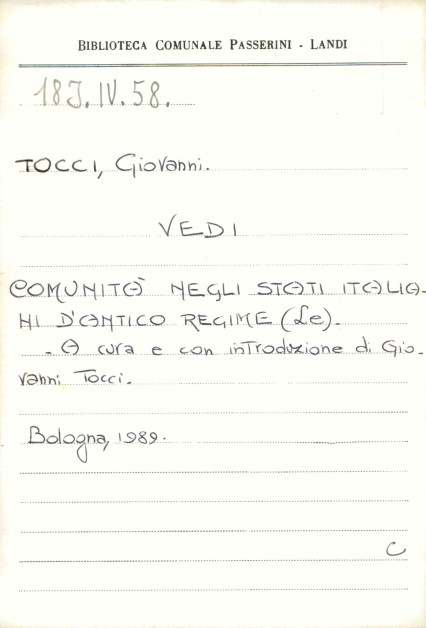 BIBLIOTECA COMUNALE PASSERINI - LANDI
18J.IV.58.
TOCCI, Giovanni.
VEDI
COMUNITA' NEGLI STATI ITALIA-
NI D'ANTICO REGIME (Le).
- A cura e con introduzione di Gio-
vanni Tocci.
Bologna, 1989.
C